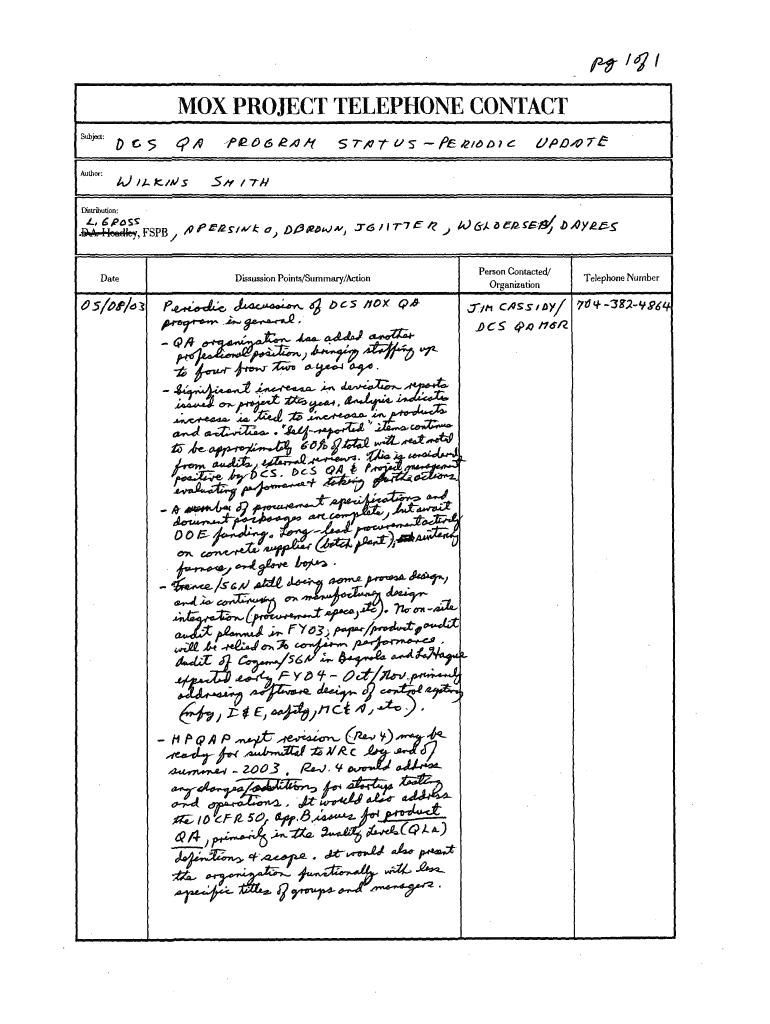 pg 1 of 1
MOX PROJECT TELEPHONE CONTACT
Subject: DCS QA PROGRAM STATUS - PERIODIC UPDATE
Author: WILKINS SMITH
Distribution:
L. GROSS
D.A. Headley, FSPB, APERSINKO, DBROWN, JGIITTER, WGLOERSEN, DAYRES
Date
Dissussion Points/Summary/Action
Person Contacted/
Organization
Telephone Number
05/08/03
Periodic discussion of DCS MOX QA
program in general.
- QA organization has added another
professional position, bringing staffing up
to four from two a year ago.
- Significant increase in deviation reports
issued on project this year. Analysis indicates
increase is tied to increase in products
and activities. "Self-reported" items continue
to be approximately 60% of total with rest noted
from audits, external reviews. This is considered
positive by DCS. DCS QA & Project management
evaluating performance & taking further actions
- A number of procurement specifications and
document packages are complete, but await
DOE funding. Long-lead procurement actively
on concrete supplier (batch plant), sintering
furnace, and glove boxes.
- France/SGN still doing some process design,
and is continuing on manufacturing design
integration (procurement specs, etc). No on-site
audit planned in FY03; paper/product audit
will be relied on to confirm performance.
Audit of Cogema/SGN in Bagnols and LaHague
expected early FY04 - Oct/Nov. primarily
addressing software design of control systems
(mfg, I & E, safety, MC&A, etc.).
- MPQAP next revision (Rev 4) may be
ready for submittal to NRC by end of
summer - 2003. Rev. 4 would address
any changes/additions for startup testing
and operations. It would also address
the 10CFR50, App. B issues for product
QA, primarily in the Quality Levels (QLs)
definitions & scope. It would also present
the organization functionally with less
specific titles of groups and managers.
JIM CASSIDY/
DCS QA MGR
704-382-4864